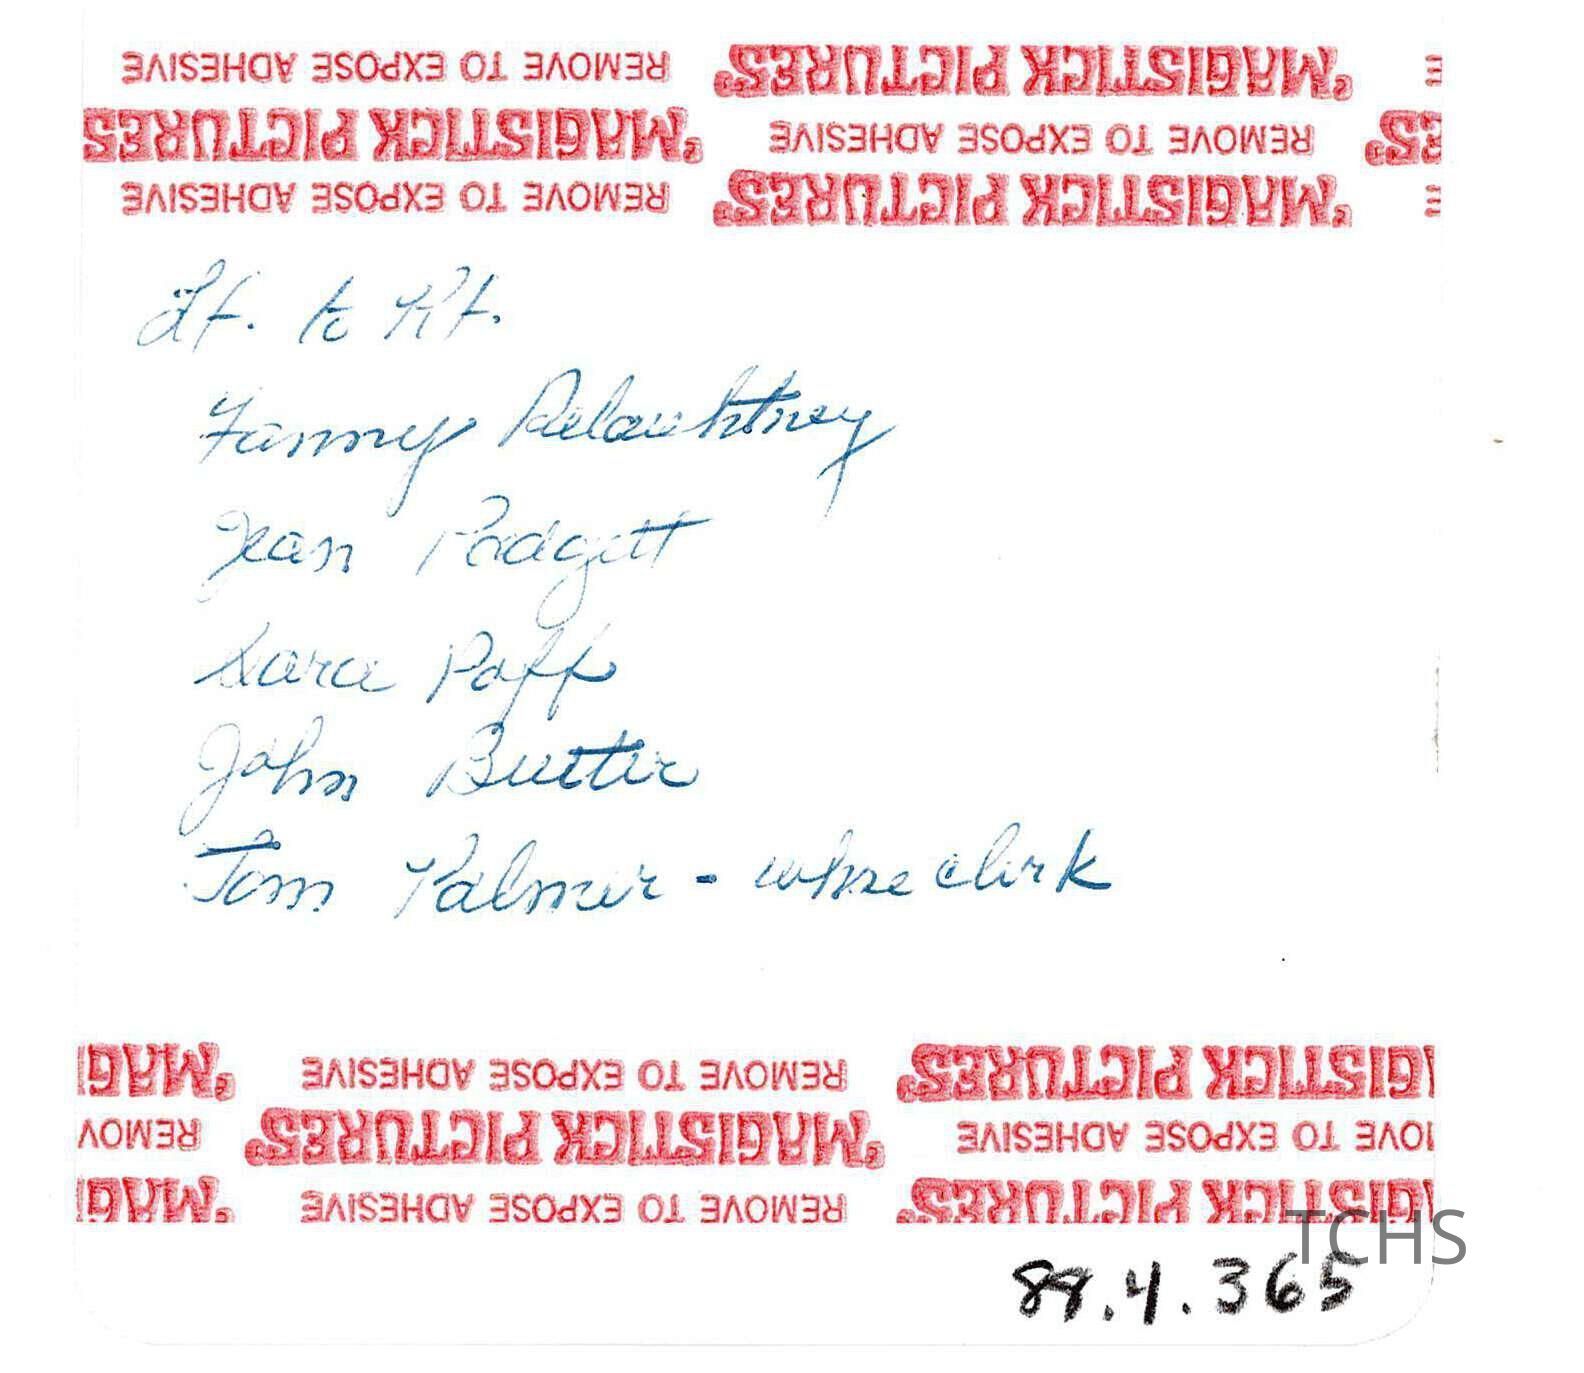 REMOVE TO EXPOSE ADHESIVE
"MAGISTICK PICTURES"
"MAGISTICK PICTURES"
REMOVE TO EXPOSE ADHESIVE
ES"
REMOVE TO EXPOSE ADHESIVE
"MAGISTICK PICTURES"
Lf. to Rt.
Fanny
Jean Padgett
Sara Poff
John Butter
Tom Palmer - whse clerk
"MAG
REMOVE TO EXPOSE ADHESIVE
GISTICK PICTURES"
REMOV
"MAGISTICK PICTURES"
OVE TO EXPOSE ADHESIVE
"MAG
REMOVE TO EXPOSE ADHESIVE
GISTICK PICTURES"
TCHS
88.4.365